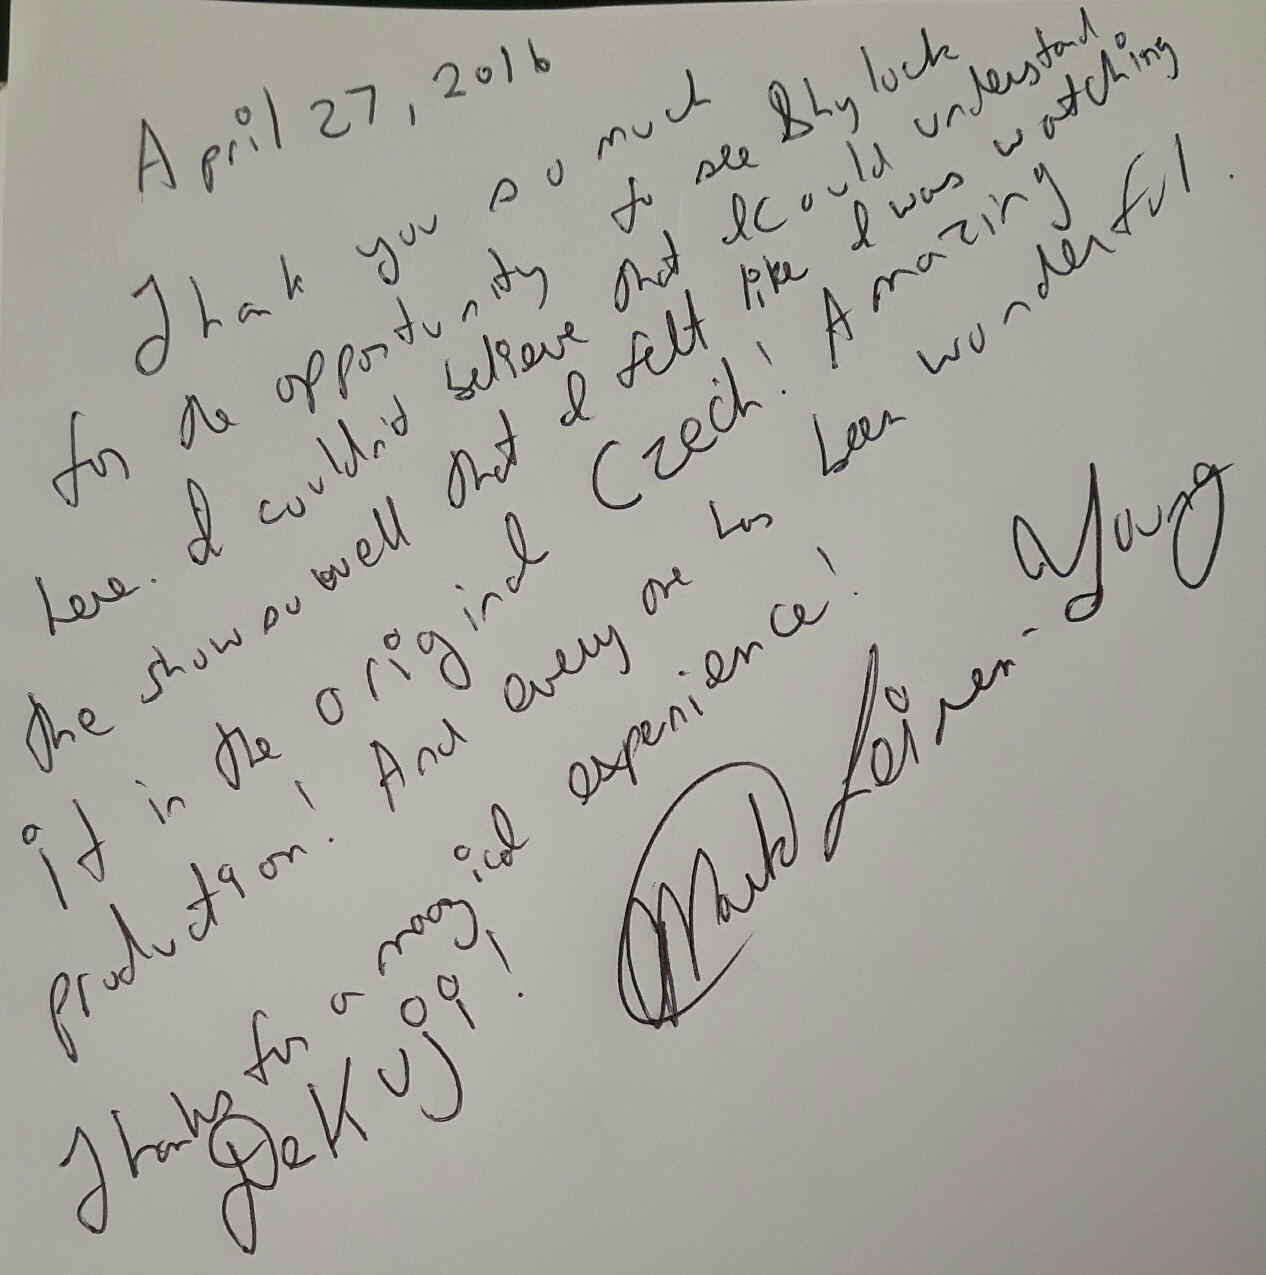 April 27, 2016
Thank you so much
for the opportunity to see Shylock
here. I couldn't believe that I could understand
the show so well that I felt like I was watching
it in the original Czech! Amazing
production! And every one has been wonderful.
Thanks for a magical experience!
DeKuji!
Mark Leiren-Young